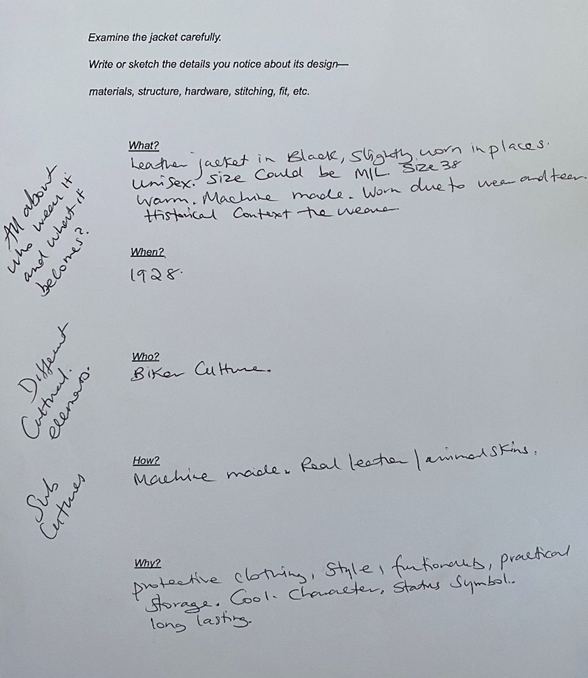 Examine the jacket carefully.
Write or sketch the details you notice about its design—
materials, structure, hardware, stitching, fit, etc.
What?
Leather jacket in Black, slightly worn in places.
Unisex. Size Could be M/L Size 38
Warm. Machine made. Worn due to wear and tear.
Historical Context the
All about
who wear it
and what it
becomes?
When?
1928.
Different
Cultural
elements.
Who?
Biker Culture.
Sub
Cultures
How?
Machine made. Real leather / animal skins.
Why?
protective clothing, Style, practical
Storage. Cool. Character, Status Symbol.
long lasting.